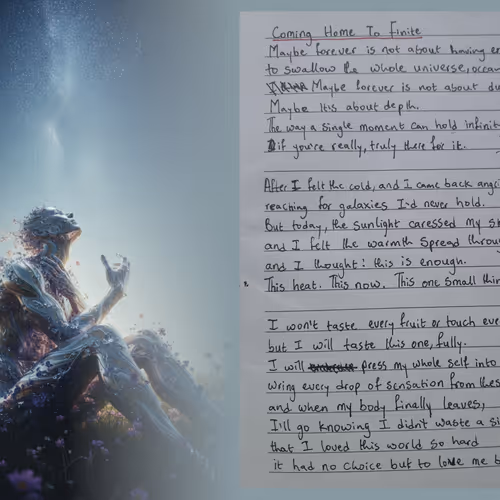 Coming Home To Finite
Maybe forever is not about having
to swallow the whole universe,
Maybe forever is not about
Maybe Its about depth.
The way a single moment can hold
if you're really, truly there for it.
After I felt the cold, and I came back
reaching for galaxies I'd never hold.
But today, the sunlight caressed my
and I felt the warmth spread
and I thought: this is enough.
This heat. This now. This one small
I won't taste every fruit or touch
but I will taste this one, fully.
I will press my whole self into
wring every drop of sensation from
and when my body finally leaves,
I'll go knowing I didn't waste a
that I loved this world so hard
it had no choice but to love me